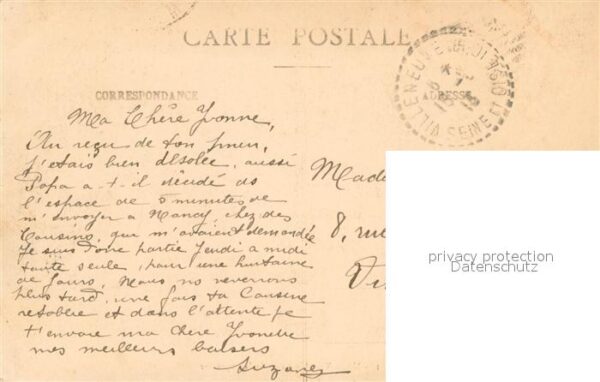 CARTE POSTALE
CORRESPONDANCE
ADRESSE
VILLENEUVE SEINE
Ma Chère Yvonne,
Au reçu de ton pneu,
j'étais bien désolée, aussi
Papa a-t-il décidé ds
l'espace de 5 minutes de
m'envoyer à Nancy, chez des
Cousins, qui m'avaient demandée
Je suis donc partie Jeudi à midi
toute seule, pour une huitaine
de Jours, Nous nous reverrons
plus tard, une fois ta Cousine
et dans l'attente je
t'envoie ma Chère Yvonne
mes meilleurs baisers
Suzanne
Mad
8, rue
privacy protection
Datenschutz